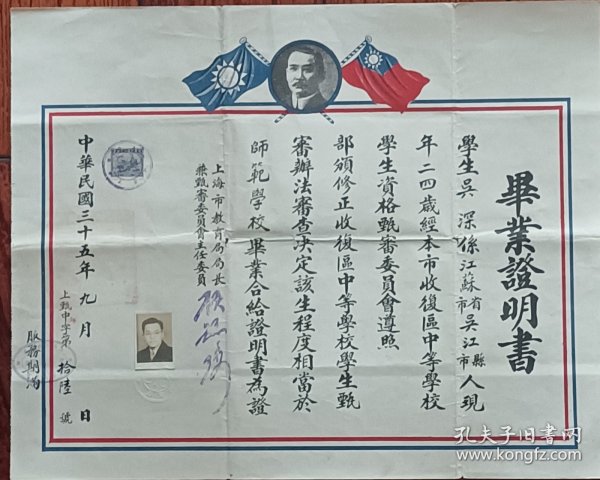 畢業證明書
學生吳深係江蘇省市吳江縣市人現
年二四歲經本市收復區中等學校
學生資格甄審委員會遵照
部頒修正收復區中等學校學生甄
審辦法審查決定該生程度相當於
師範學校畢業合給證明書為證
上海市教育局局長
兼甄審委員會主任委員
中華民國三十五年九月 日
上甄中字第拾陸號
服務期滿
孔夫子旧书网
www.kongfz.com